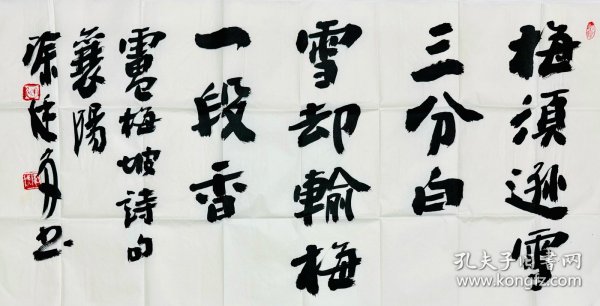 梅須遜雪
三分白
雪却輸梅
一段香
雪梅坡詩句
襄陽
孔夫子旧书网
www.kongfz.com